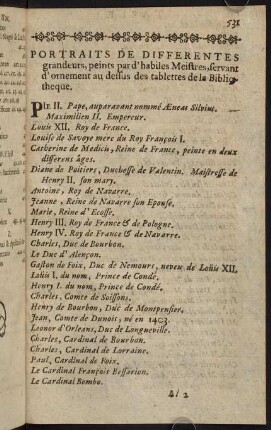 531
PORTRAITS DE DIFFERENTES
grandeurs, peints par d'habiles Meistres, servant
d'ornement au dessus des tablettes de la Biblio-
theque.
PIE II. Pape, auparavant nommé Æneas Silvius.
Maximilien II. Empereur.
Louis XII, Roy de France.
Louise de Savoye mere du Roy François I.
Catherine de Medicis, Reine de France, peinte en deux
differens âges.
Diane de Poitiers, Duchesse de Valentin. Maistresse de
Henry II, son mary.
Antoine, Roy de Navarre.
Jeanne, Reine de Navarre son Epouse.
Marie, Reine d'Ecosse.
Henry III, Roy de France & de Pologne.
Henry IV, Roy de France & de Navarre.
Charles, Duc de Bourbon.
Le Duc d'Alençon.
Gaston de Foix, Duc de Nemours, neveu de Loüis XII.
Loüis I. du nom, Prince de Condé.
Henry I. du nom, Prince de Condé.
Charles, Comte de Soissons.
Henry de Bourbon, Duc de Montpensier.
Jean, Comte de Dunois, né en 1403.
Leonor d'Orleans, Duc de Longueville.
Charles, Cardinal de Bourbon.
Charles, Cardinal de Lorraine.
Paul, Cardinal de Foix.
Le Cardinal François Bessarion.
Le Cardinal Bembo.